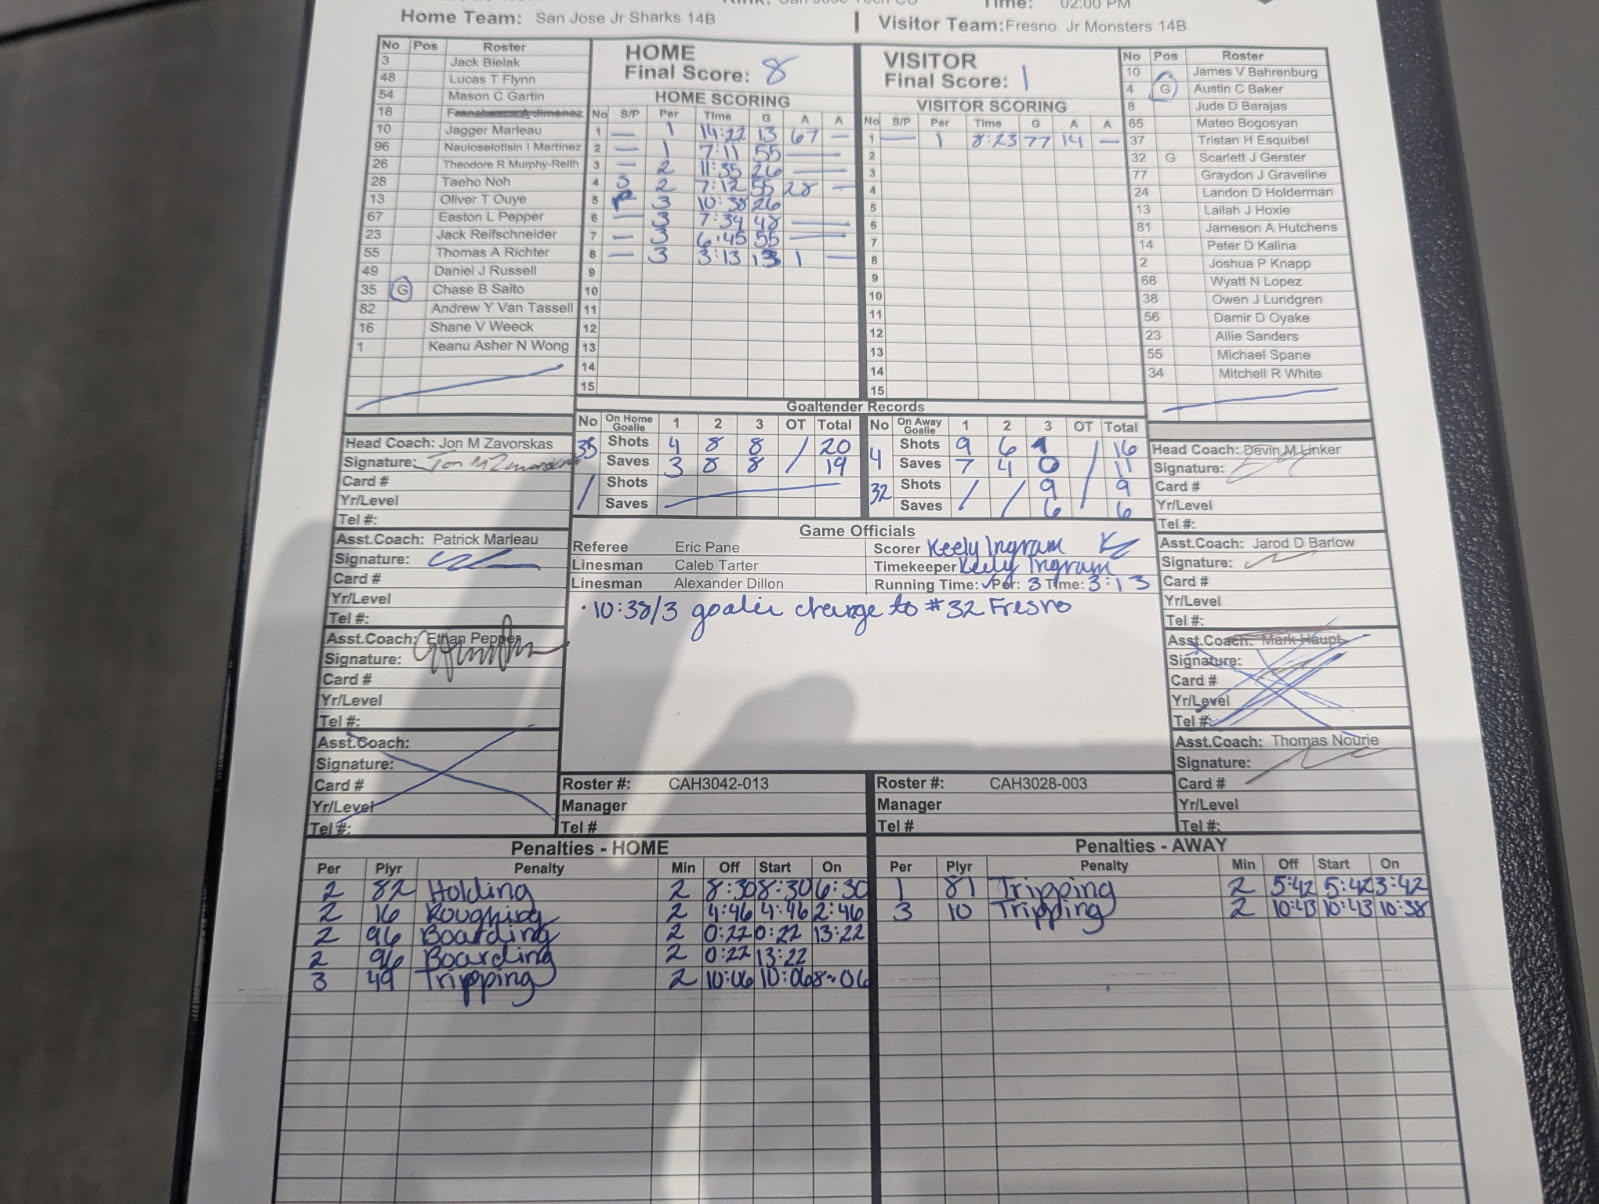 Time: 02:00 PM
Home Team: San Jose Jr Sharks 14B
Visitor Team: Fresno Jr Monsters 14B
No Pos Roster
3 Jack Bielak
48 Lucas T Flynn
54 Mason C Gartin
18
10 Jagger Marleau
96 Nauloselotisin I Martinez
26 Theodore R Murphy-Reith
28 Taeho Noh
13 Oliver T Ouye
67 Easton L Pepper
23 Jack Reifschneider
55 Thomas A Richter
49 Daniel J Russell
35 G Chase B Saito
82 Andrew Y Van Tassell
16 Shane V Weeck
1 Keanu Asher N Wong
HOME
Final Score: 8
HOME SCORING
No S/P Per Time G A A
1 — 1 14:22 13 67 —
2 — 1 7:11 55 —
3 — 2 11:35 26 —
4 S 2 7:12 55 28 —
5 P 3 10:38 26
6 — 3 7:34 48 —
7 — 3 6:45 55 —
8 — 3 3:13 13 1 —
9
10
11
12
13
14
15
VISITOR
Final Score: 1
VISITOR SCORING
No S/P Per Time G A A
1 — 1 8:23 77 14 —
2
3
4
5
6
7
8
9
10
11
12
13
14
15
No Pos Roster
10 James V Bahrenburg
4 G Austin C Baker
8 Jude D Barajas
65 Mateo Bogosyan
37 Tristan H Esquibel
32 G Scarlett J Gerster
77 Graydon J Graveline
24 Landon D Holderman
13 Lailah J Hoxie
81 Jameson A Hutchens
14 Peter D Kalina
2 Joshua P Knapp
68 Wyatt N Lopez
38 Owen J Lundgren
56 Damir D Oyake
23 Allie Sanders
55 Michael Spane
34 Mitchell R White
Goaltender Records
No On Home Goalie 1 2 3 OT Total
35 Shots 4 8 8 / 20
Saves 3 8 8 / 19
/ Shots
Saves
No On Away Goalie 1 2 3 OT Total
4 Shots 9 6 1 / 16
Saves 7 4 0 / 11
32 Shots / / 9 / 9
Saves / / 6 / 6
Head Coach: Jon M Zavorskas
Signature: Jon M Zavorskas
Card #
Yr/Level
Tel #:
Asst.Coach: Patrick Marleau
Signature:
Card #
Yr/Level
Tel #:
Asst.Coach: Ethan Pepper
Signature:
Card #
Yr/Level
Tel #:
Asst.Coach:
Signature:
Card #
Yr/Level
Tel #:
Game Officials
Referee Eric Pane
Linesman Caleb Tarter
Linesman Alexander Dillon
Scorer Keely Ingram
Timekeeper Keely Ingram
Running Time: ✓ Per: 3 Time: 3:13
· 10:38/3 goalie change to #32 Fresno
Head Coach: Devin M Linker
Signature:
Card #
Yr/Level
Tel #:
Asst.Coach: Jarod D Barlow
Signature:
Card #
Yr/Level
Tel #:
Asst.Coach: Mark Haupt
Signature:
Card #
Yr/Level
Tel #:
Asst.Coach: Thomas Nourie
Signature:
Card #
Yr/Level
Tel #:
Roster #: CAH3042-013
Manager
Tel #
Roster #: CAH3028-003
Manager
Tel #
Penalties - HOME
Per Plyr Penalty Min Off Start On
2 82 Holding 2 8:30 8:30 6:30
2 16 Roughing 2 4:46 4:46 2:46
2 96 Boarding 2 0:22 0:22 13:22
2 96 Boarding 2 0:22 13:22
3 49 Tripping 2 10:06 10:06 8:06
Penalties - AWAY
Per Plyr Penalty Min Off Start On
1 81 Tripping 2 5:42 5:42 3:42
3 10 Tripping 2 10:43 10:43 10:38